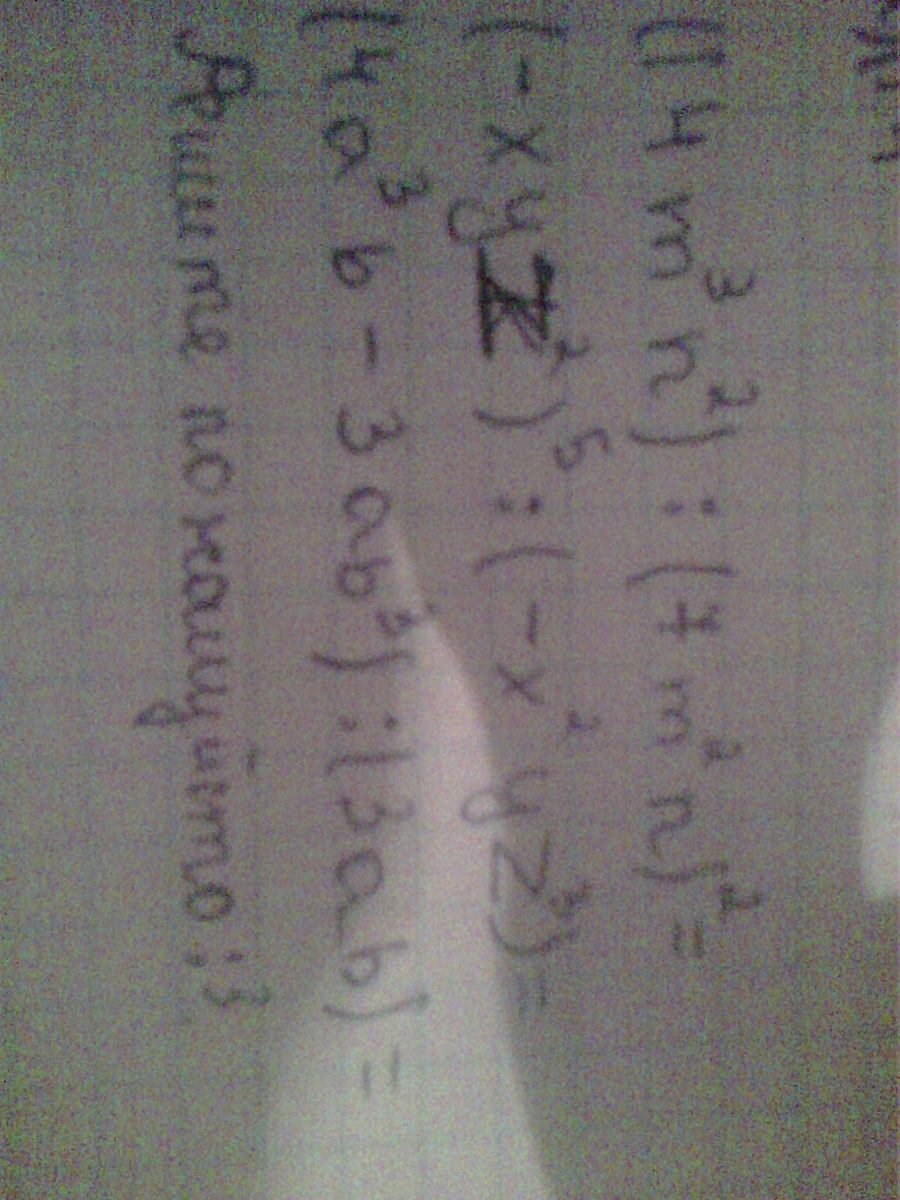 (14m³n²) : (7m²n)² =
(-xyz²)⁵ : (-x²yz³) =
(4a³b - 3ab³) : (3ab) =
Решите пожалуйсто :}